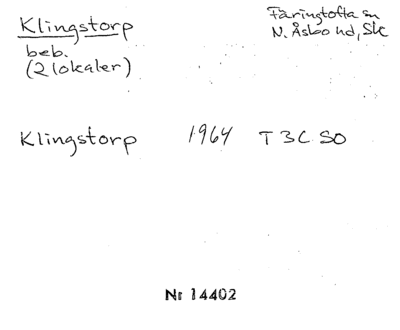 Klingstorp
beb.
(2 lokaler)
Färingtofta sn
N. Åsbo hd, Sk
Klingstorp 1964 T 3C SO
Nr 14402